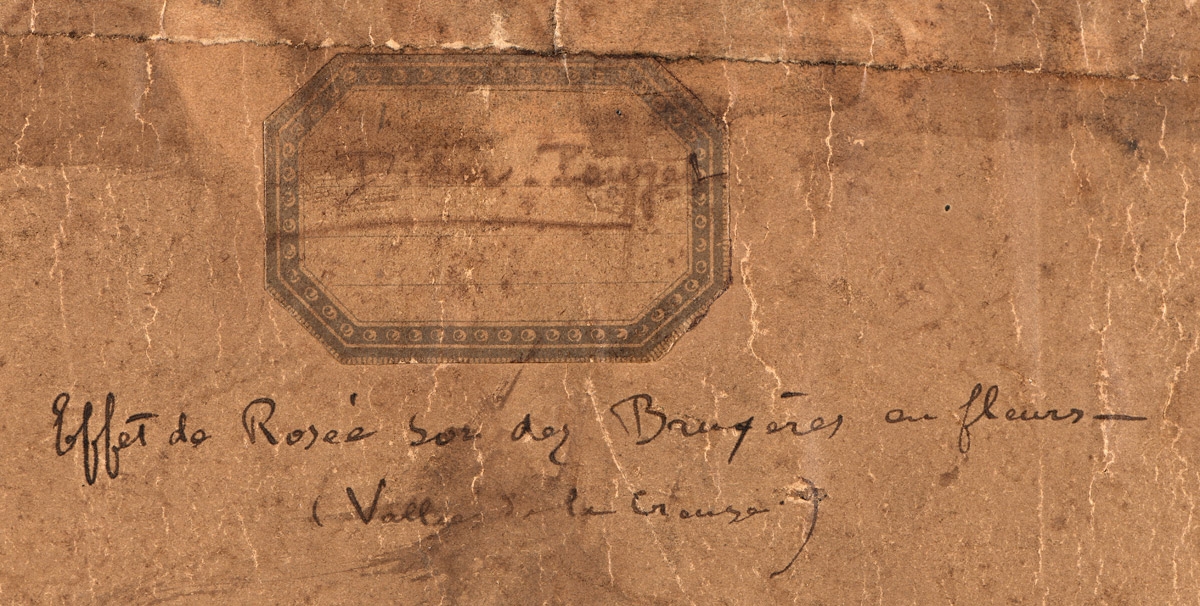 Didier-Pouget
Effet de Rosée sur des Bruyères en fleurs—
(Vallée de la Creuse.)